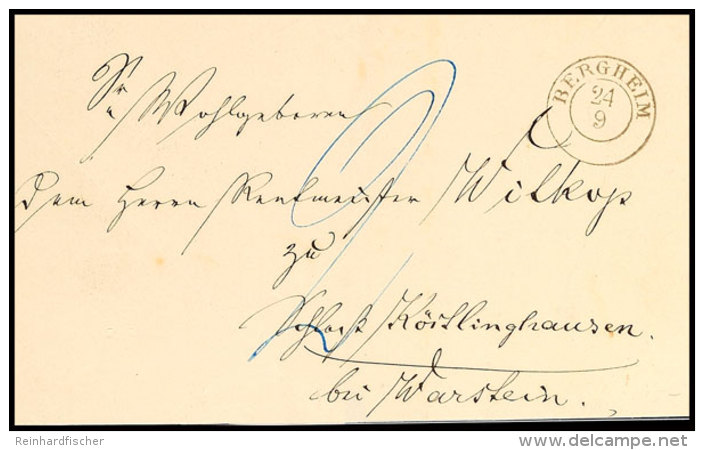 Sr
Wohlgeboren
BERGHEIM
24
9
dem Herrn Rentmeister Wilkop
zu
Schloß Körtlinghausen.
bei Warstein.
Reinhardfischer
delcampe.net